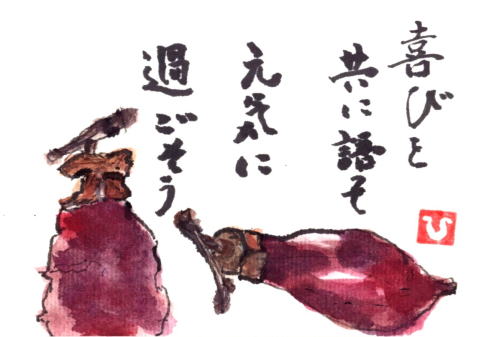 喜びを
共に語そ
元気に
過ごそう
ひ